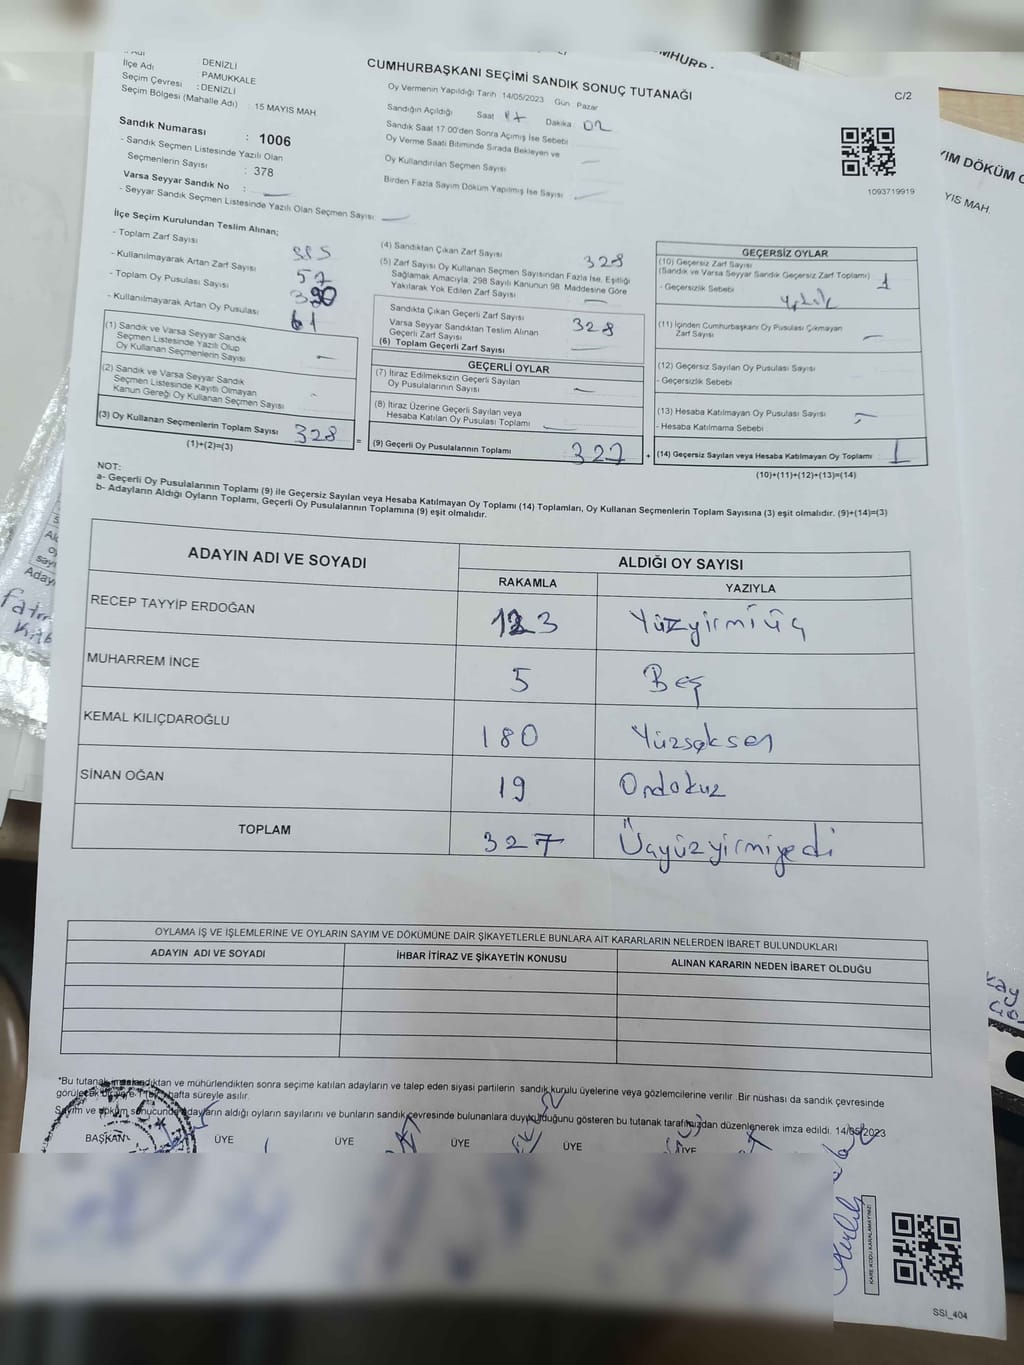 İlçe Adı
DENİZLİ
: PAMUKKALE
Seçim Çevresi : DENİZLİ
Seçim Bölgesi (Mahalle Adı) : 15 MAYIS MAH.
CUMHURBAŞKANI SEÇİMİ SANDIK SONUÇ TUTANAĞI
C/2
Oy Vermenin Yapıldığı Tarih :14/05/2023 Gün : Pazar
Sandığın Açıldığı Saat 17 Dakika 02
Sandık Saat 17.00'den Sonra Açılmış İse Sebebi
Oy Verme Saati Bitiminde Sırada Bekleyen ve
Oy Kullandırılan Seçmen Sayısı
Birden Fazla Sayım Döküm Yapılmış İse Sayısı
1093719919
Sandık Numarası : 1006
- Sandık Seçmen Listesinde Yazılı Olan
Seçmenlerin Sayısı : 378
Varsa Seyyar Sandık No :
- Seyyar Sandık Seçmen Listesinde Yazılı Olan Seçmen Sayısı
İlçe Seçim Kurulundan Teslim Alınan;
- Toplam Zarf Sayısı
- Kullanılmayarak Artan Zarf Sayısı 57
- Toplam Oy Pusulası Sayısı 390
- Kullanılmayarak Artan Oy Pusulası 61
(1) Sandık ve Varsa Seyyar Sandık
Seçmen Listesinde Yazılı Olup
Oy Kullanan Seçmenlerin Sayısı
(2) Sandık ve Varsa Seyyar Sandık
Seçmen Listesinde Kayıtlı Olmayan
Kanun Gereği Oy Kullanan Seçmen Sayısı
(3) Oy Kullanan Seçmenlerin Toplam Sayısı 328
(1)+(2)=(3)
(4) Sandıktan Çıkan Zarf Sayısı 328
(5) Zarf Sayısı Oy Kullanan Seçmen Sayısından Fazla İse, Eşitliği
Sağlamak Amacıyla; 298 Sayılı Kanunun 98. Maddesine Göre
Yakılarak Yok Edilen Zarf Sayısı
Sandıkta Çıkan Geçerli Zarf Sayısı 328
Varsa Seyyar Sandıktan Teslim Alınan
Geçerli Zarf Sayısı
(6) Toplam Geçerli Zarf Sayısı
GEÇERLİ OYLAR
(7) İtiraz Edilmeksizin Geçerli Sayılan
Oy Pusulalarının Sayısı
(8) İtiraz Üzerine Geçerli Sayılan veya
Hesaba Katılan Oy Pusulası Toplamı
= (9) Geçerli Oy Pusulalarının Toplamı 327
GEÇERSİZ OYLAR
(10) Geçersiz Zarf Sayısı
(Sandık ve Varsa Seyyar Sandık Geçersiz Zarf Toplamı) 1
- Geçersizlik Sebebi
(11) İçinden Cumhurbaşkanı Oy Pusulası Çıkmayan
Zarf Sayısı
(12) Geçersiz Sayılan Oy Pusulası Sayısı
- Geçersizlik Sebebi
(13) Hesaba Katılmayan Oy Pusulası Sayısı
- Hesaba Katılmama Sebebi
+ (14) Geçersiz Sayılan veya Hesaba Katılmayan Oy Toplamı 1
(10)+(11)+(12)+(13)=(14)
NOT:
a- Geçerli Oy Pusulalarının Toplamı (9) ile Geçersiz Sayılan veya Hesaba Katılmayan Oy Toplamı (14) Toplamları, Oy Kullanan Seçmenlerin Toplam Sayısına (3) eşit olmalıdır. (9)+(14)=(3)
b- Adayların Aldığı Oyların Toplamı, Geçerli Oy Pusulalarının Toplamına (9) eşit olmalıdır.
ADAYIN ADI VE SOYADI
ALDIĞI OY SAYISI
RAKAMLA YAZIYLA
RECEP TAYYİP ERDOĞAN 123 Yüzyirmiüç
MUHARREM İNCE 5 Beş
KEMAL KILIÇDAROĞLU 180 Yüzseksen
SİNAN OĞAN 19 Ondokuz
TOPLAM 327 Üçyüzyirmiyedi
OYLAMA İŞ VE İŞLEMLERİNE VE OYLARIN SAYIM VE DÖKÜMÜNE DAİR ŞİKAYETLERLE BUNLARA AİT KARARLARIN NELERDEN İBARET BULUNDUKLARI
ADAYIN ADI VE SOYADI İHBAR İTİRAZ VE ŞİKAYETİN KONUSU ALINAN KARARIN NEDEN İBARET OLDUĞU
*Bu tutanak imzalandıktan ve mühürlendikten sonra seçime katılan adayların ve talep eden siyasi partilerin sandık kurulu üyelerine veya gözlemcilerine verilir. Bir nüshası da sandık çevresinde
görülecek bir yere 1 hafta süreyle asılır.
Sayım ve döküm sonucunda adayların aldığı oyların sayılarını ve bunların sandık çevresinde bulunanlara duyurulduğunu gösteren bu tutanak tarafımızdan düzenlenerek imza edildi. 14/05/2023
BAŞKAN ÜYE ÜYE ÜYE ÜYE ÜYE
KARE KODU KARALAMAYINIZ!
SSI_404
YIM DÖKÜM
YIS MAH.